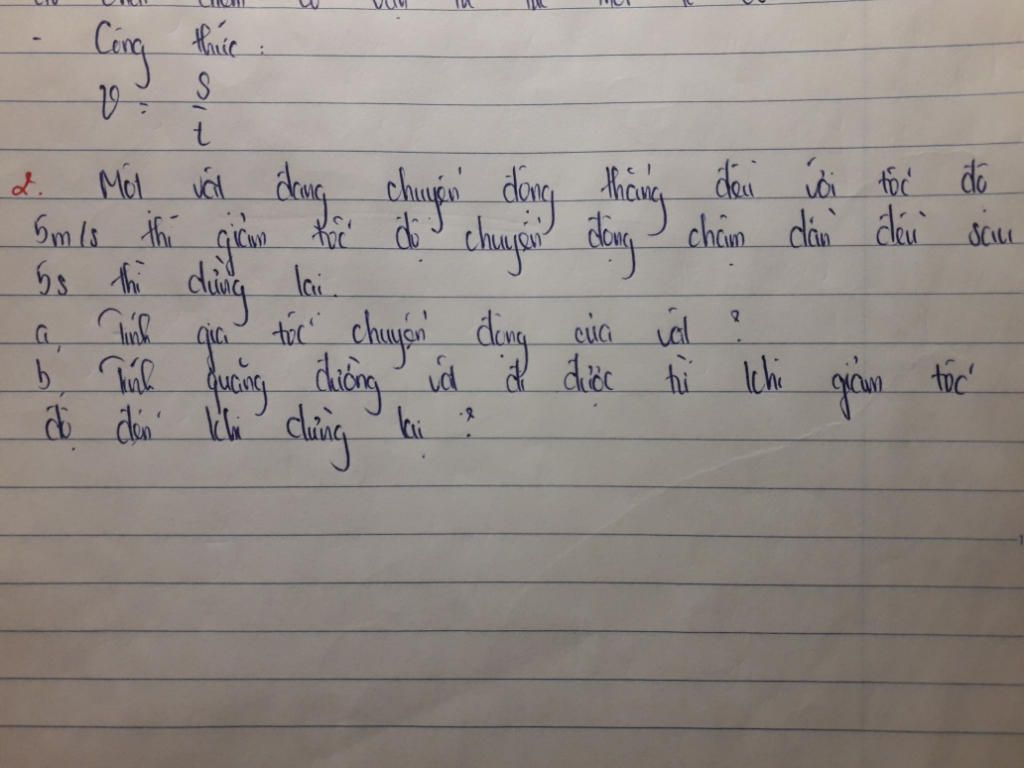 - Công thức :
v = s/t
2. Một vật đang chuyển động thẳng đều với tốc độ
5m/s thì giảm tốc độ chuyển động chậm dần đều sau
5s thì dừng lại.
a, Tính gia tốc chuyển động của vật ?
b, Tính quãng đường vật đi được từ khi giảm tốc
độ đến khi dừng lại ?